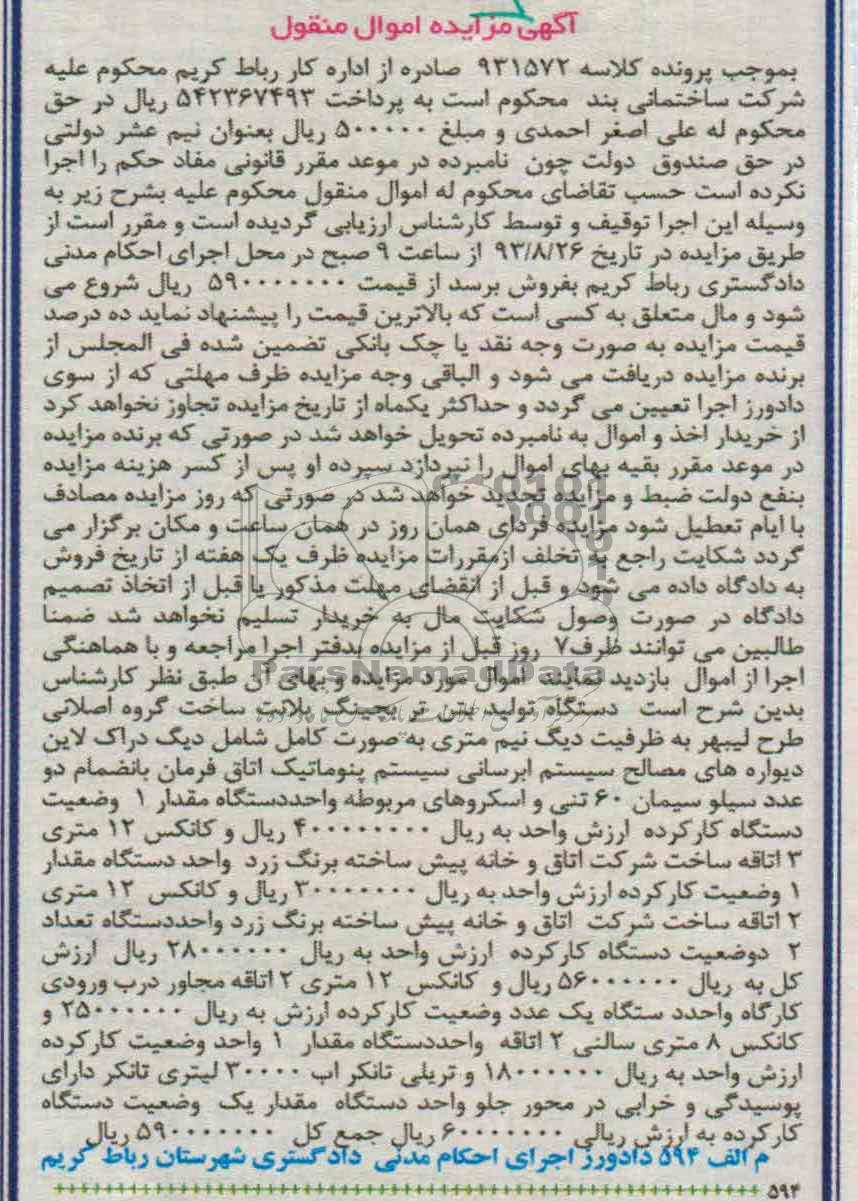 آگهی مزایده اموال منقول
بموجب پرونده کلاسه ۹۳۱۵۷۲ صادره از اداره کار رباط کریم محکوم علیه
شرکت ساختمانی بند محکوم است به پرداخت ۵۴۲۳۶۷۴۹۳ ریال در حق
محکوم له علی اصغر احمدی و مبلغ ۵۰۰۰۰۰ ریال بعنوان نیم عشر دولتی
در حق صندوق دولت چون نامبرده در موعد مقرر قانونی مفاد حکم را اجرا
نکرده است حسب تقاضای محکوم له اموال منقول محکوم علیه بشرح زیر به
وسیله این اجرا توقیف و توسط کارشناس ارزیابی گردیده است و مقرر است از
طریق مزایده در تاریخ ۹۳/۸/۲۶ از ساعت ۹ صبح در محل اجرای احکام مدنی
دادگستری رباط کریم بفروش برسد از قیمت ۵۹۰۰۰۰۰۰۰ ریال شروع می
شود و مال متعلق به کسی است که بالاترین قیمت را پیشنهاد نماید ده درصد
قیمت مزایده به صورت وجه نقد یا چک بانکی تضمین شده فی المجلس از
برنده مزایده دریافت می شود و الباقی وجه مزایده ظرف مهلتی که از سوی
دادورز اجرا تعیین می گردد و حداکثر یکماه از تاریخ مزایده تجاوز نخواهد کرد
از خریدار اخذ و اموال به نامبرده تحویل خواهد شد در صورتی که برنده مزایده
در موعد مقرر بقیه بهای اموال را نپردازد سپرده او پس از کسر هزینه مزایده
بنفع دولت ضبط و مزایده تجدید خواهد شد در صورتی که روز مزایده مصادف
با ایام تعطیل شود مزایده فردای همان روز در همان ساعت و مکان برگزار می
گردد شکایت راجع به تخلف ازمقررات مزایده ظرف یک هفته از تاریخ فروش
به دادگاه داده می شود و قبل از انقضای مهلت مذکور یا قبل از اتخاذ تصمیم
دادگاه در صورت وصول شکایت مال به خریدار تسلیم نخواهد شد ضمنا
طالبین می توانند ظرف۷ روز قبل از مزایده بدفتر اجرا مراجعه و با هماهنگی
ParsNamadData
اجرا از اموال بازدید نمایند اموال مورد مزایده و بهای آن طبق نظر کارشناس
بدین شرح است دستگاه تولید بتن تر بچینگ پلانت ساخت گروه اصلانی
طرح لیبهر به ظرفیت دیگ نیم متری به صورت کامل شامل دیگ دراک لاین
دیواره های مصالح سیستم ابرسانی سیستم پنوماتیک اتاق فرمان بانضمام دو
عدد سیلو سیمان ۶۰ تنی و اسکروهای مربوطه واحددستگاه مقدار ۱ وضعیت
دستگاه کارکرده ارزش واحد به ریال ۴۰۰۰۰۰۰۰۰ ریال و کانکس ۱۲ متری
۳ اتاقه ساخت شرکت اتاق و خانه پیش ساخته برنگ زرد واحد دستگاه مقدار
۱ وضعیت کارکرده ارزش واحد به ریال ۳۰۰۰۰۰۰۰ ریال و کانکس ۱۲ متری
۲ اتاقه ساخت شرکت اتاق و خانه پیش ساخته برنگ زرد واحددستگاه تعداد
۲ دوضعیت دستگاه کارکرده ارزش واحد به ریال ۲۸۰۰۰۰۰۰ ریال ارزش
کل به ریال ۵۶۰۰۰۰۰۰ ریال و کانکس ۱۲ متری ۲ اتاقه مجاور درب ورودی
کارگاه واحدد ستگاه یک عدد وضعیت کارکرده ارزش به ریال ۲۵۰۰۰۰۰۰ و
کانکس ۸ متری سالنی ۲ اتاقه واحددستگاه مقدار ۱ واحد وضعیت کارکرده
ارزش واحد به ریال ۱۸۰۰۰۰۰۰ و تریلی تانکر اب ۳۰۰۰۰ لیتری تانکر دارای
پوسیدگی و خرابی در محور جلو واحد دستگاه مقدار یک وضعیت دستگاه
کارکرده به ارزش ریالی ۶۰۰۰۰۰۰۰ ریال جمع کل ۵۹۰۰۰۰۰۰۰ ریال
م الف ۵۹۴ دادورز اجرای احکام مدنی دادگستری شهرستان رباط کریم
۵۹۴